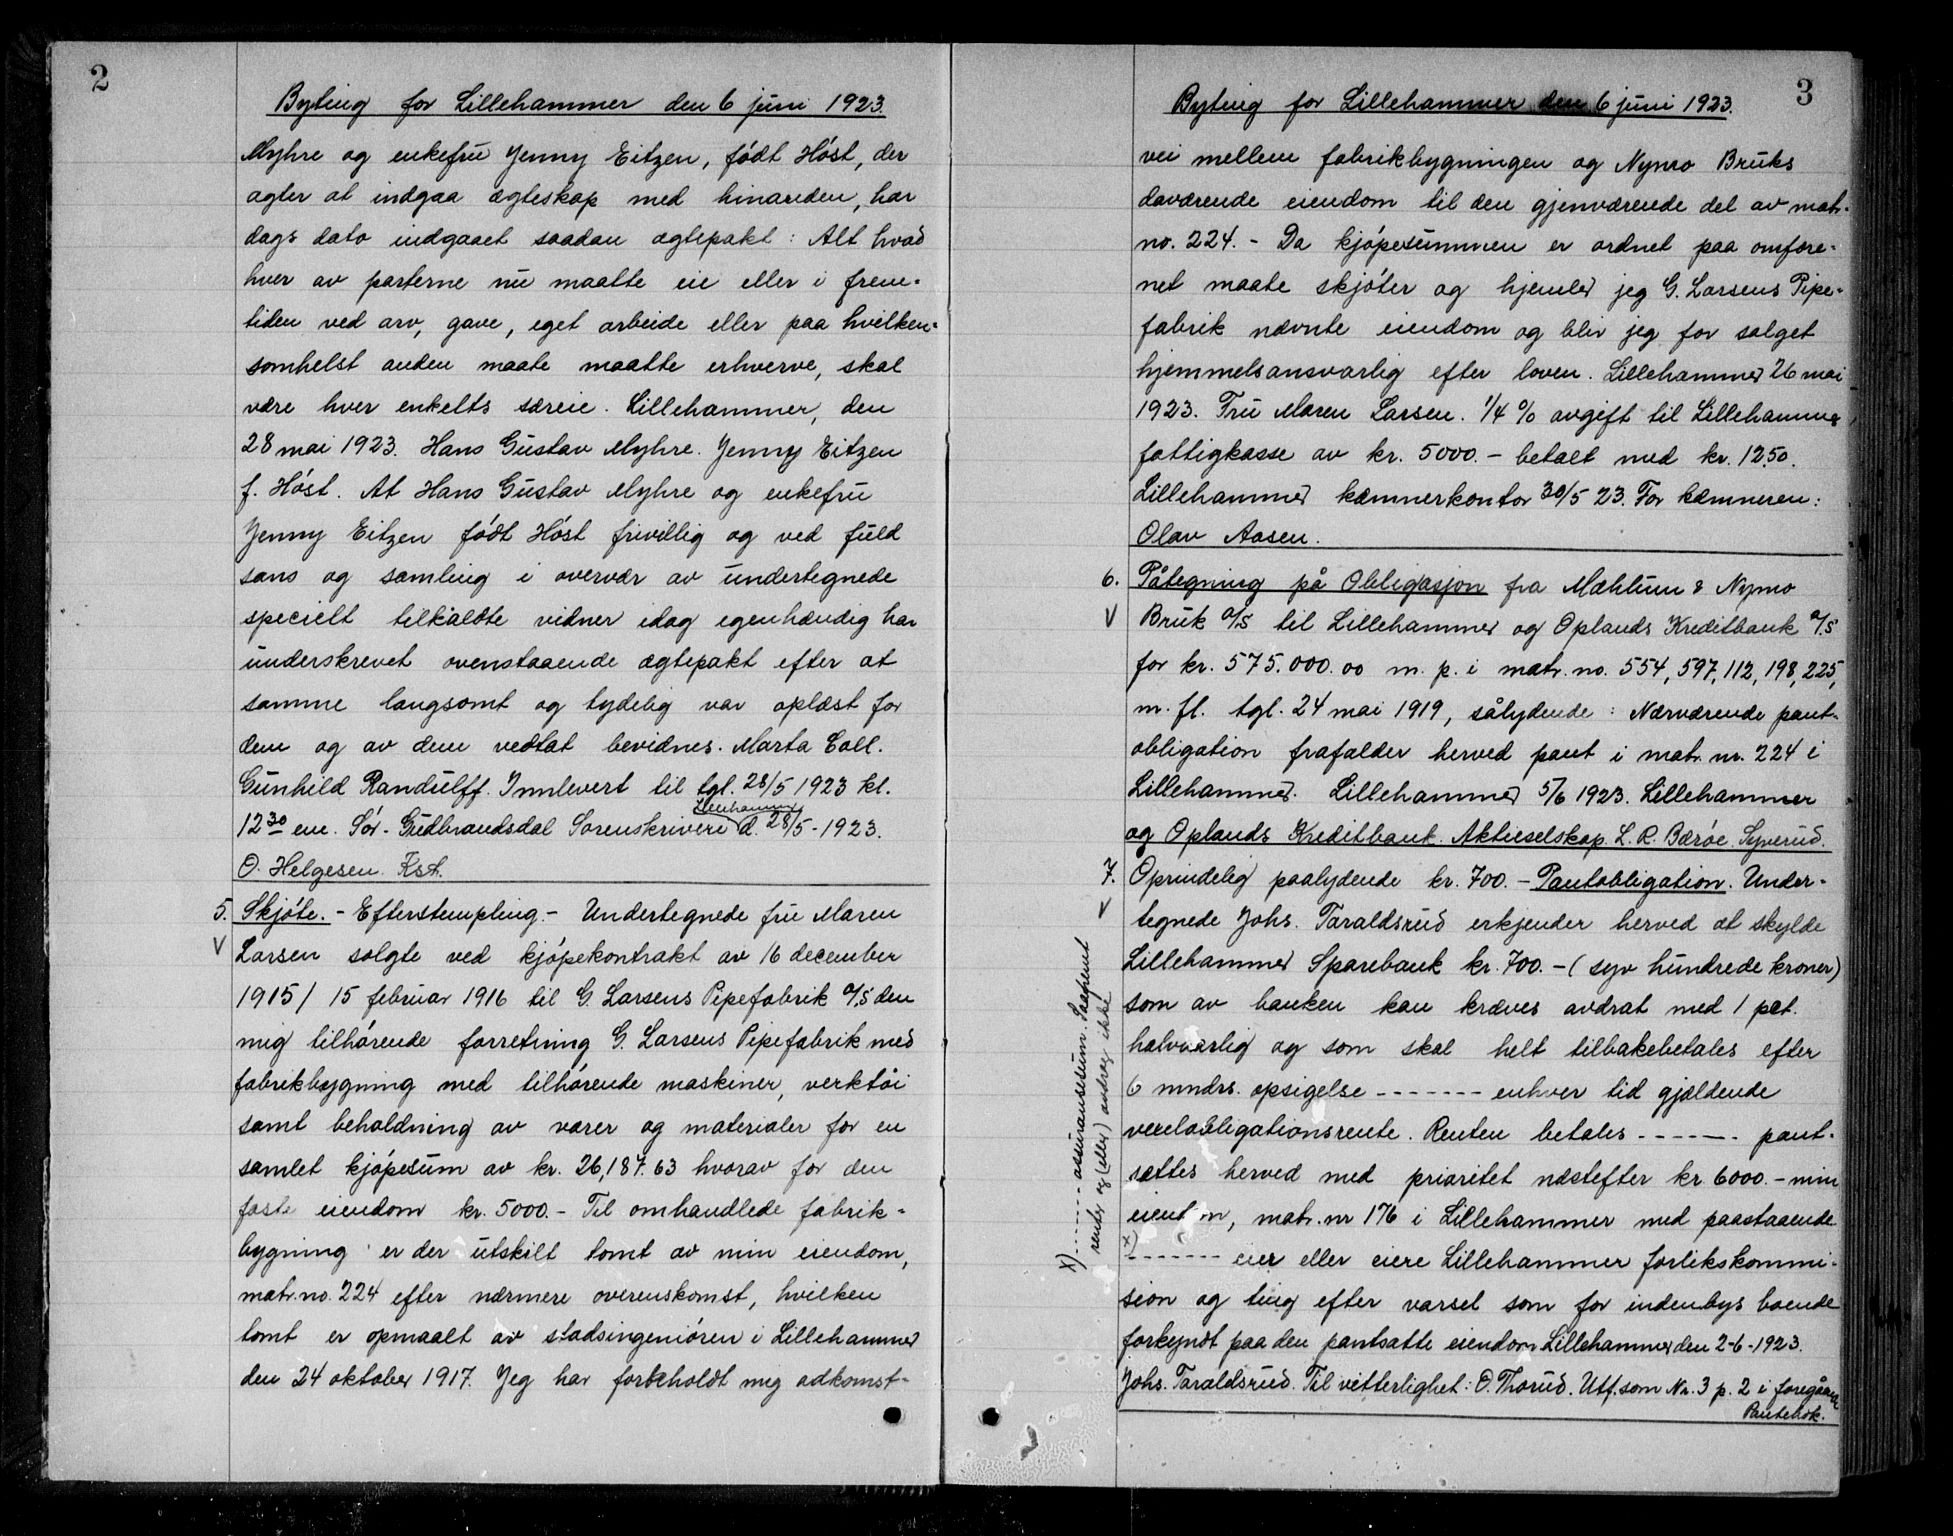 2
Byting for Lillehammer den 6 juni 1923.
Myhre og enkefru Jenny Eitzen, født Høst, der
agter at indgaa ægteskap med hinanden, har
dags dato indgaaet saadan ægtepakt: Alt hvad
hver av parterne nu maatte eie eller i frem-
tiden ved arv, gave, eget arbeide eller paa hvilken-
somhelst anden maate maatte erhverve, skal
være hver enkelts særeie. Lillehammer, den
28 mai 1923. Hans Gustav Myhre. Jenny Eitzen
f. Høst. At Hans Gustav Myhre og enkefru
Jenny Eitzen født Høst frivillig og ved fuld
sans og samling i overvær av undertegnede
specielt tilkaldte vidner idag egenhændig har
underskrevet ovenstaaende ægtepakt efter at
samme langsomt og tydelig var oplæst for
dem og av dem vedtat bevidnes. Marta Coll.
Gunhild Randulff. Innlevert til tgl. 28/5 1923 kl.
12 30 em. Sør-Gudbrandsdal Sorenskriveri Lillehammer d. 28/5-1923.
O. Helgesen. Kst.
5. Skjøte. - Efterstempling. - Undertegnede fru Maren
V Larsen solgte ved kjøpekontrakt av 16 december
1915/ 15 februar 1916 til G. Larsens Pipefabrik A/S den
mig tilhørende forretning G. Larsens Pipefabrik med
fabrikbygning med tilhørende maskiner, verktøi
samt beholdning av varer og materialer for en
samlet kjøpesum av kr. 26,187.63 hvorav for den
faste eiendom kr. 5000.- Til omhandlede fabrik-
bygning er der utskilt tomt av min eiendom,
matr. no. 224 efter nærmere overenskomst, hvilken
tomt er opmaalt av stadsingeniøren i Lillehammer
den 24 oktober 1917. Jeg har forbeholdt mig adkomst-
3
Byting for Lillehammer den 6 juni 1923.
vei mellem fabrikbygningen og Nymo Bruks
daværende eiendom til den gjenværende del av matr.
no. 224. - Da kjøpesummen er ordnet paa omfore-
net maate skjøter og hjemler jeg G. Larsens Pipe-
fabrik nævnte eiendom og blir jeg for salget
hjemmelsansvarlig efter loven. Lillehammer 26 mai
1923. Fru Maren Larsen. 1/4 % avgift til Lillehammer
fattigkasse av kr. 5000.- betalt med kr. 12.50.
Lillehammer kæmnerkontor 30/5 23. For kæmneren:
Olav Aasen.
6. Påtegning på Obligasjon fra Mæhlum & Nymo
V Bruk A/S til Lillehammer og Oplands Kreditbank A/S
for kr. 575.000.00 m. p. i matr. no. 554, 597, 112, 198, 225,
m. fl. tgl. 24 mai 1919, sålydende: Nærværende pant-
obligation frafalder herved pant i matr. nr. 224 i
Lillehammer. Lillehammer 5/6 1923. Lillehammer
og Oplands Kreditbank. Aktieselskap. L. R. Bærøe. Syverud.
7. Oprindelig paalydende kr. 700. - Pantobligation. Under-
V tegnede Johs. Taraldsrud erkjender herved at skylde
Lillehammer Sparebank kr. 700.- (syv hundrede kroner)
som av banken kan kræves avdrat med 1 pct.
halvaarlig og som skal helt tilbakebetales efter
6 mndrs. opsigelse - - - - - - - enhver tid gjældende
vexelobligationsrente. Renten betales - - - - - - pant-
sættes herved med prioritet næstefter kr. 6000.- min
eiendom, matr. nr 176 i Lillehammer med paastaaende
x) - - - - - - - eier eller eiere Lillehammer forlikskommi-
sion og ting efter varsel som for indenbys boende
forkyndt paa den pantsatte eiendom Lillehammer den 2-6-1923.
Johs. Taraldsrud. Til vitterlighet: O. Thorud. Utf. som Nr. 3 p. 2 i foregående
Pantebok.
x) - - - - - - - assuransesum. Saafremt
renter og (eller) avdrag ikke